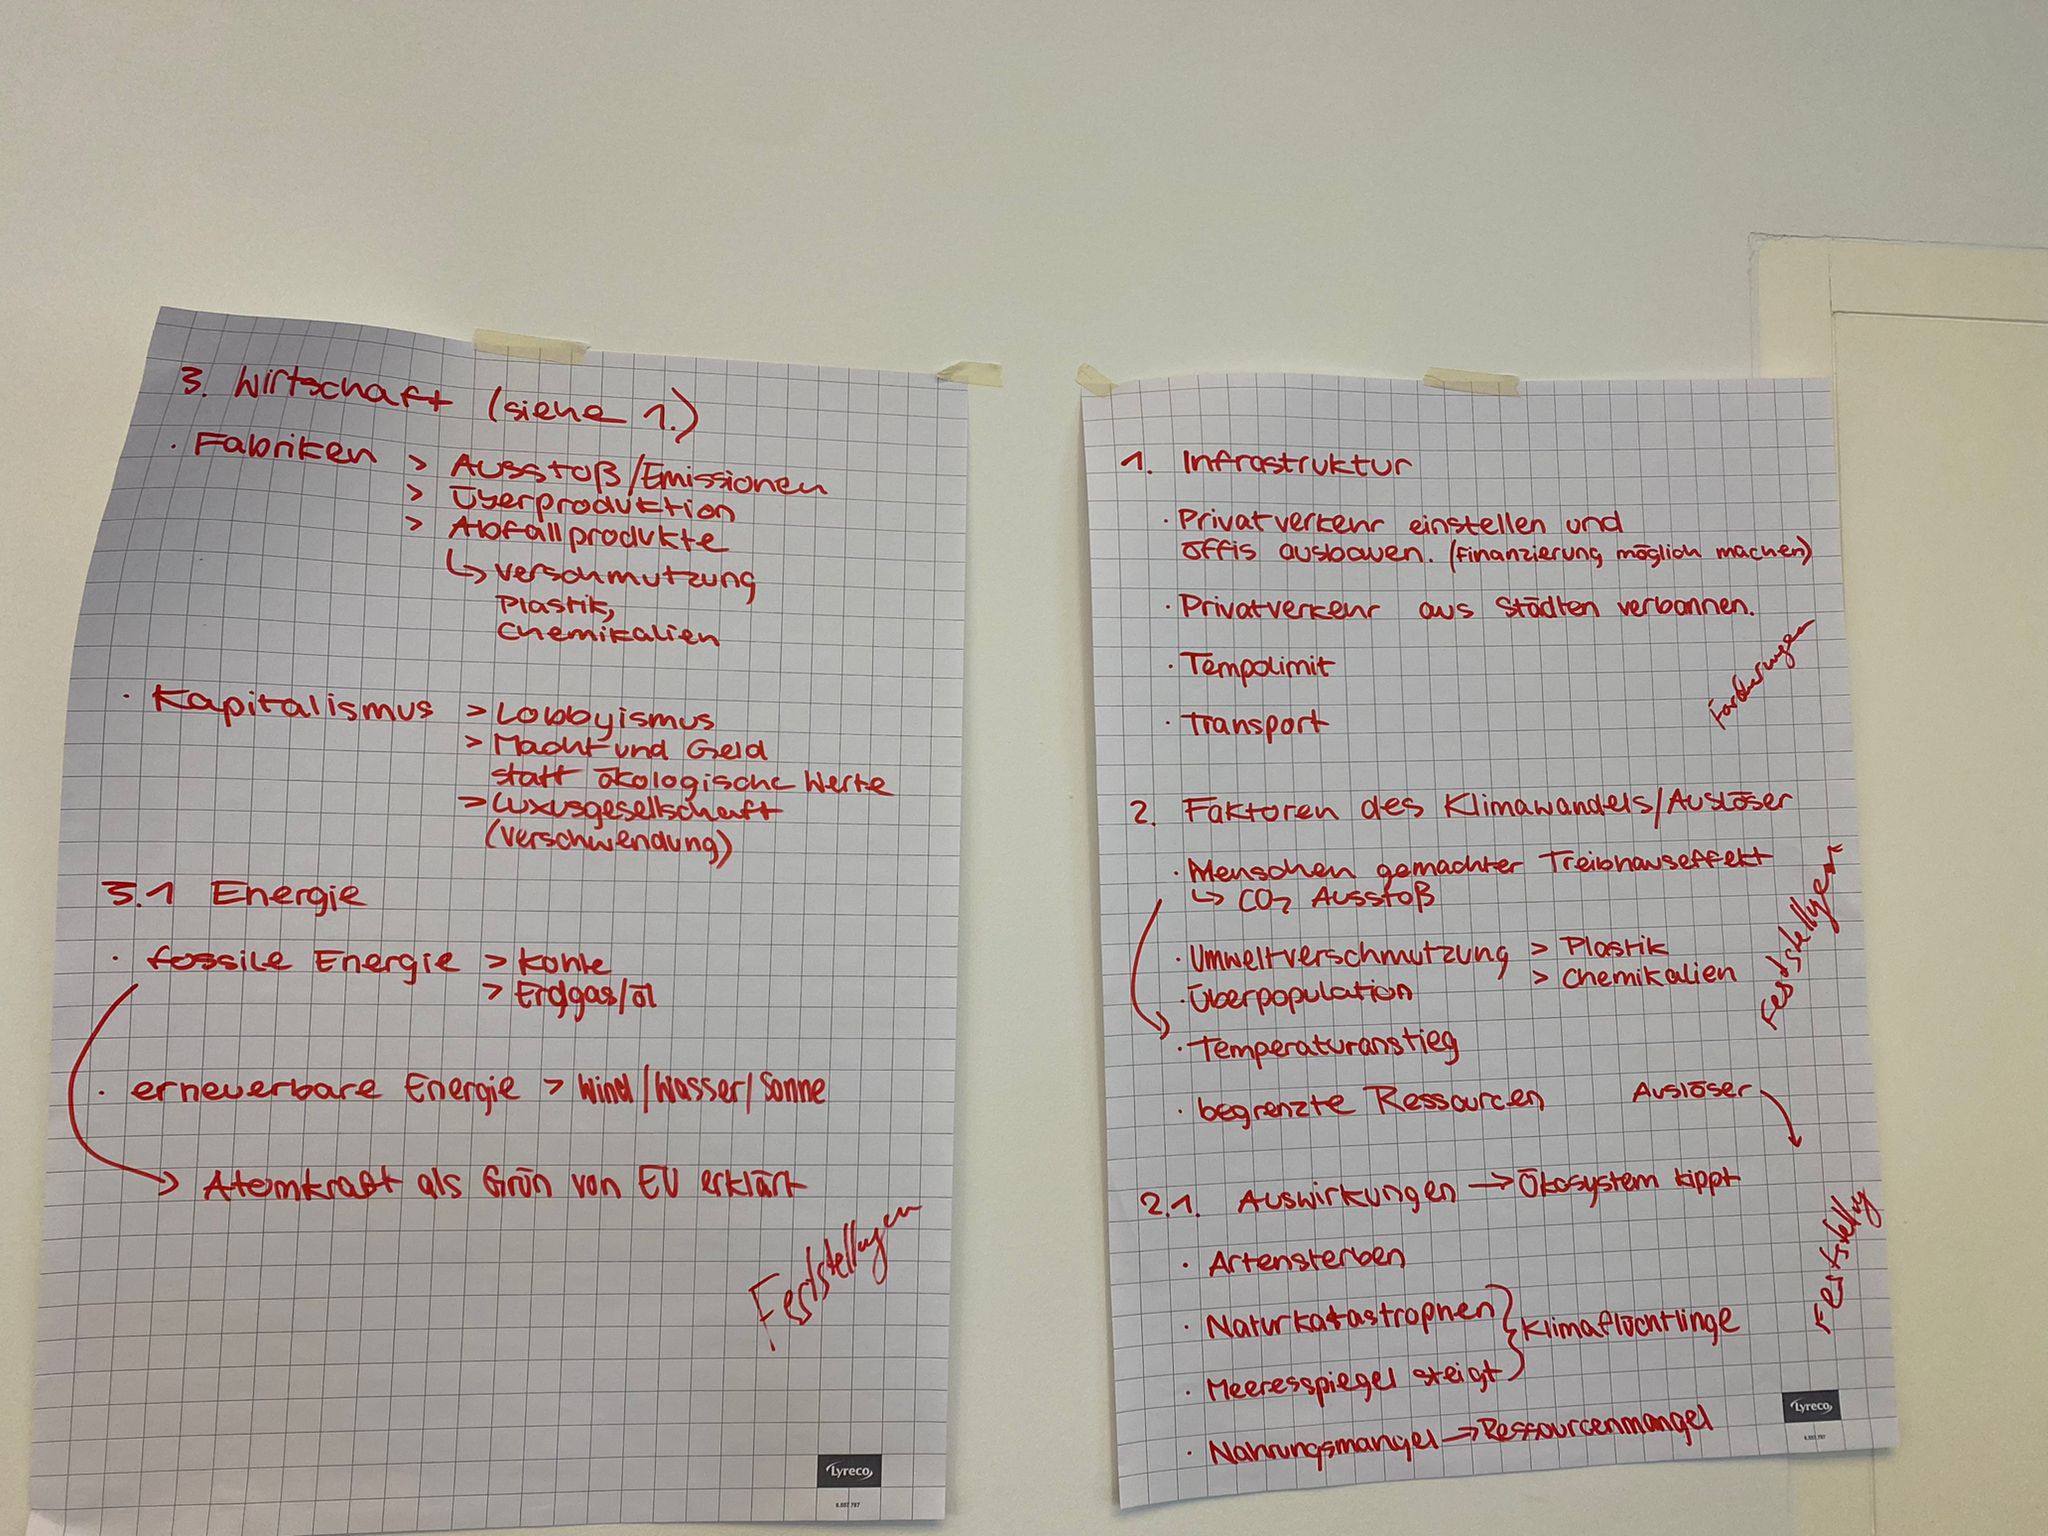 3. Wirtschaft (siehe 1.)
· Fabriken > Ausstoß/Emissionen
> Überproduktion
> Abfallprodukte
↳ Verschmutzung
Plastik,
Chemikalien
· Kapitalismus > Lobbyismus
> Macht und Geld
statt ökologische Werte
> Luxusgesellschaft
(Verschwendung)
3.1 Energie
· fossile Energie > Kohle
> Erdgas/öl
· erneuerbare Energie > Wind/Wasser/Sonne
→ Atomkraft als Grün von EU erklärt
Feststellungen
Lyreco
6.557.787
1. Infrastruktur
· Privatverkehr einstellen und
Öffis ausbauen. (Finanzierung möglich machen)
· Privatverkehr aus Städten verbannen.
· Tempolimit
· Transport
Forderungen
2. Faktoren des Klimawandels/Auslöser
· Menschen gemachter Treibhauseffekt
↳ CO2 Ausstoß
· Umweltverschmutzung > Plastik
> Chemikalien
· Überpopulation
· Temperaturanstieg
· begrenzte Ressourcen
Feststellungen
Auslöser
2.1. Auswirkungen → Ökosystem kippt
· Artensterben
· Naturkatastrophen } Klimaflüchtlinge
· Meeresspiegel steigt
· Nahrungsmangel → Ressourcenmangel
Feststellung
Lyreco